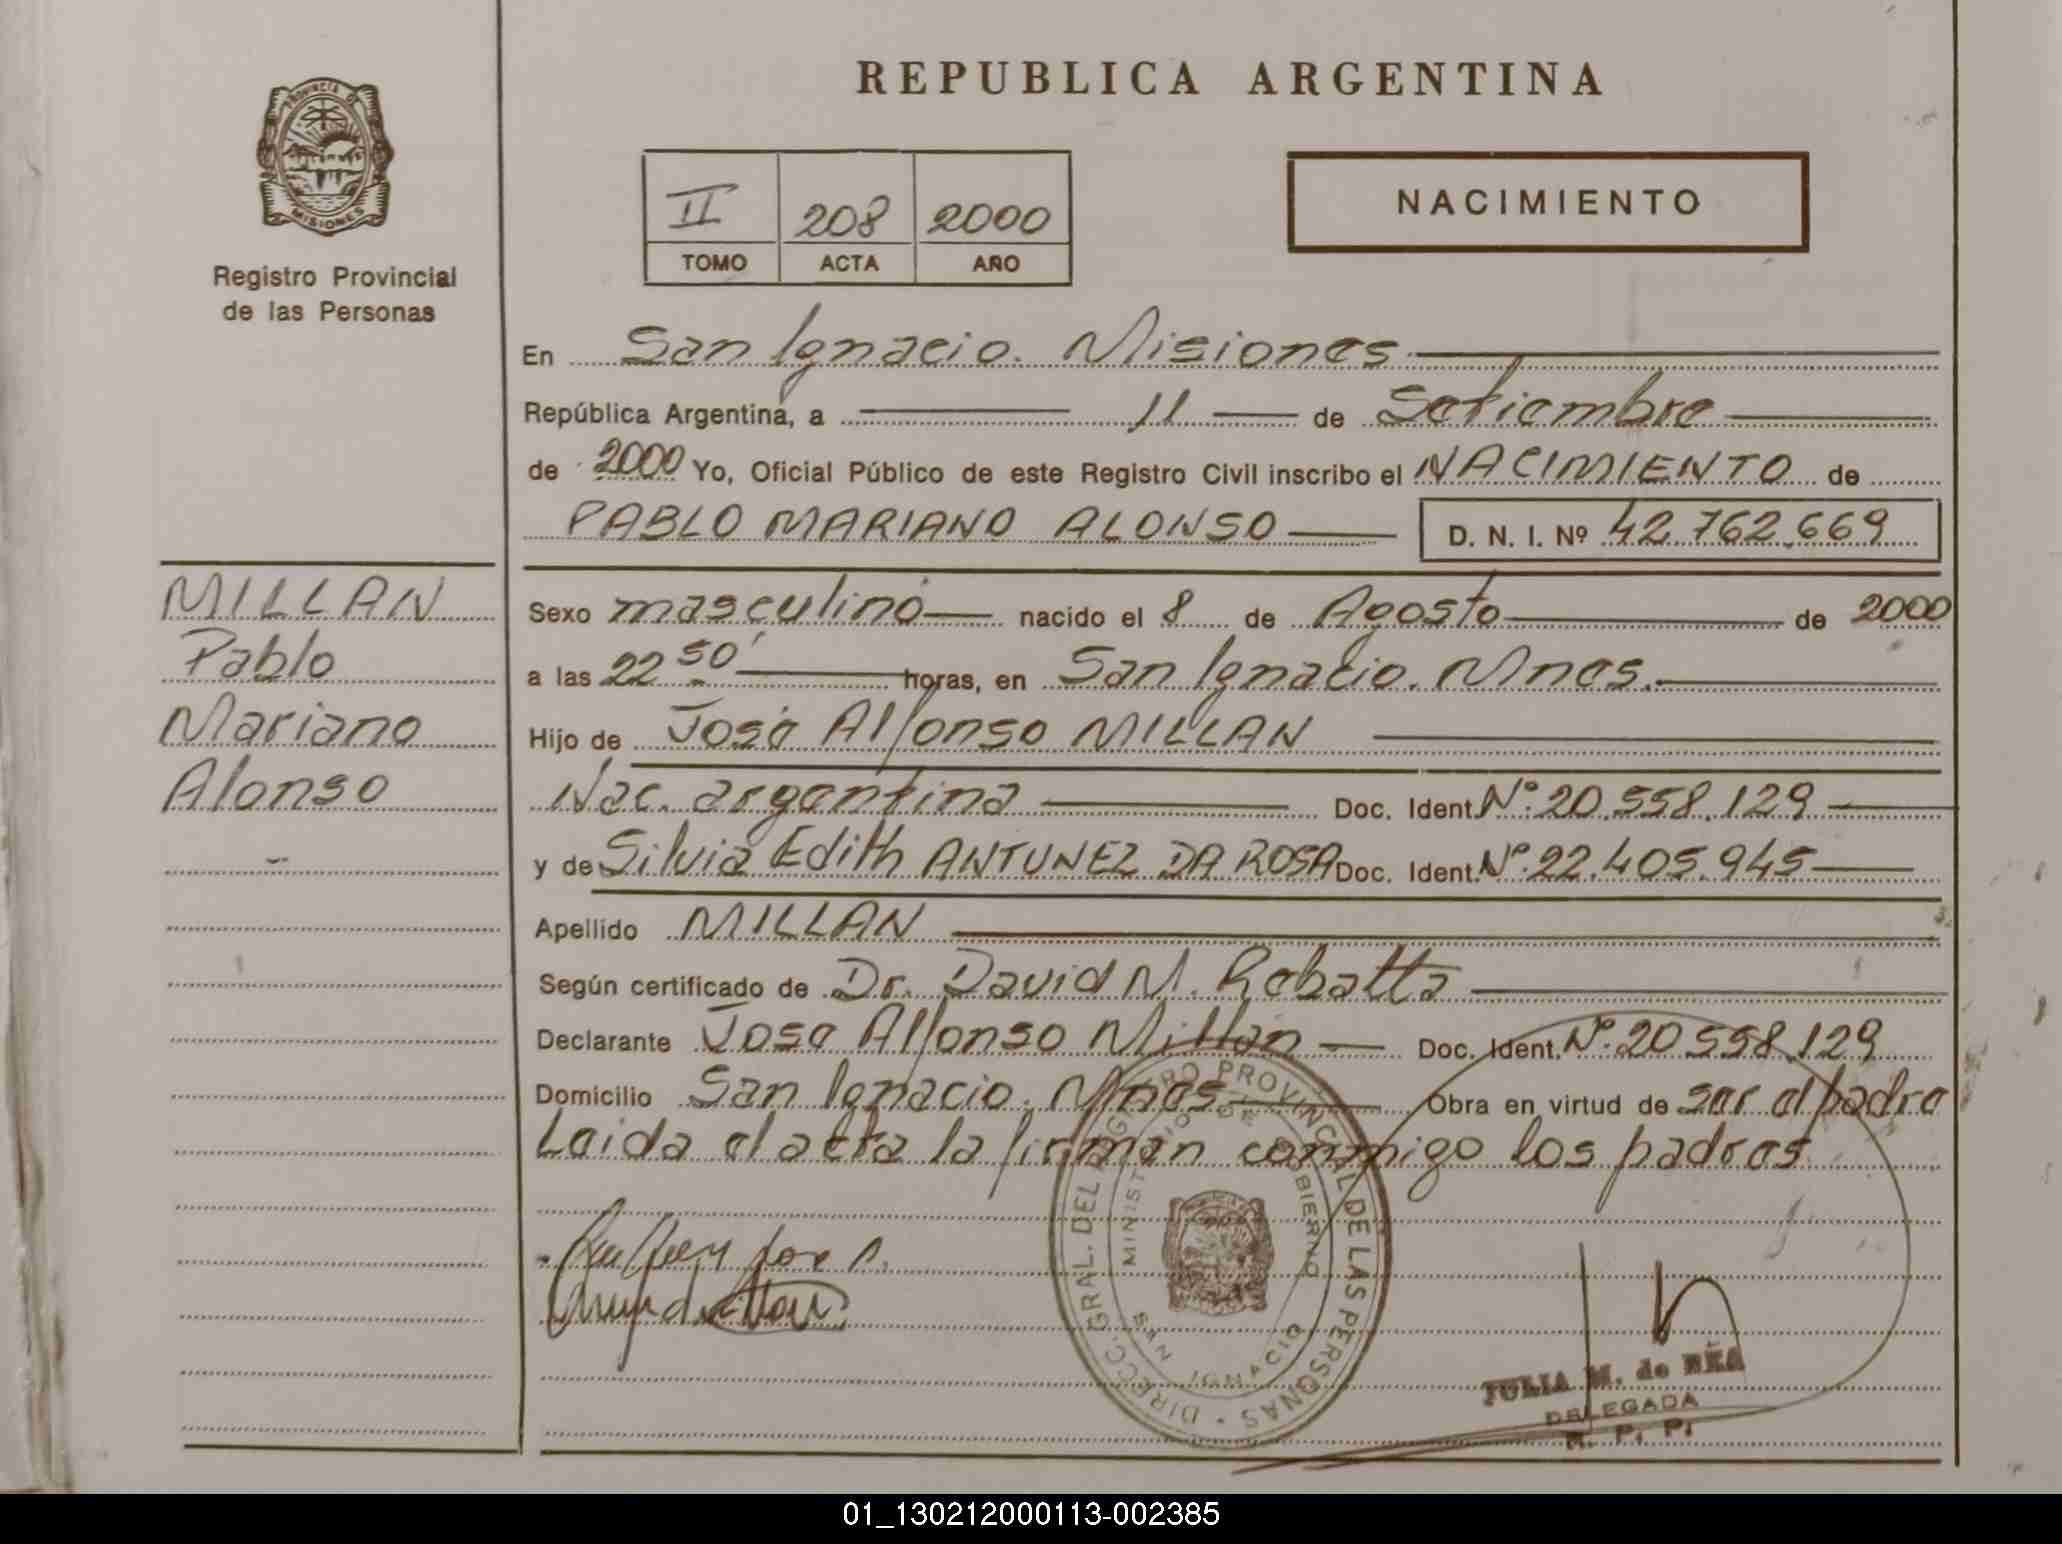 REPUBLICA ARGENTINA
PROVINCIA DE
MISIONES
Registro Provincial
de las Personas
II 208 2000
TOMO ACTA AÑO
NACIMIENTO
En San Ignacio. Misiones
República Argentina, a 11 de Setiembre
de 2000 Yo, Oficial Público de este Registro Civil inscribo el NACIMIENTO de
PABLO MARIANO ALONSO D. N. I. Nº 42.762.669
MILLAN
Pablo
Mariano
Alonso
Sexo masculino nacido el 8 de Agosto de 2000
a las 22 50' horas, en San Ignacio. Mnes.
Hijo de José Alfonso MILLAN
Nac. argentina Doc. Ident. Nº. 20.558.129
y de Silvia Edith ANTUNEZ DA ROSA Doc. Ident. Nº. 22.405.945
Apellido MILLAN
Según certificado de Dr. David M. Rebatta
Declarante Jose Alfonso Millan Doc. Ident. Nº. 20.558.129
Domicilio San Ignacio. Mnes. Obra en virtud de ser el padre
Leida el acta la firman conmigo los padres
DIRECC. GRAL. DEL REGISTRO PROVINCIAL DE LAS PERSONAS
MINISTERIO DE GOBIERNO
SAN IGNACIO
JULIA M. de REA
DELEGADA
R. P. P.
01_130212000113-002385